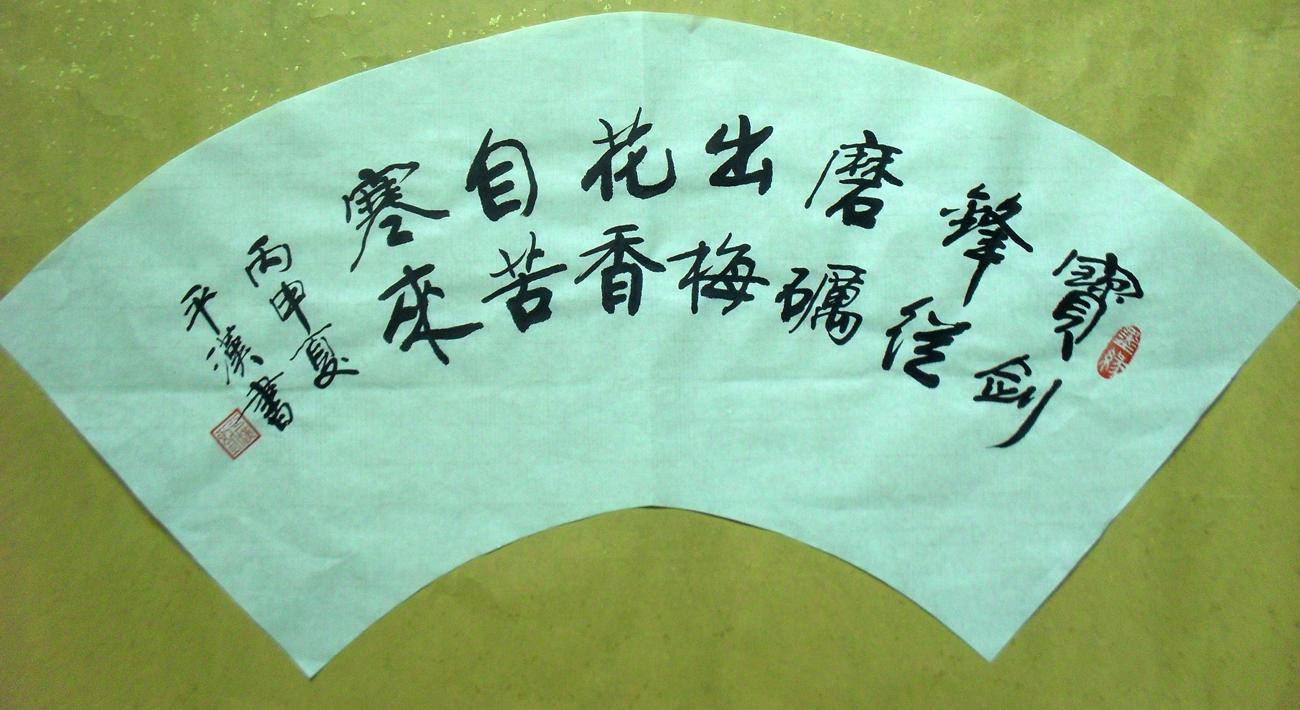 寶剑
鋒從
磨礪
出梅
花香
自苦
寒來
丙申夏
平漢書